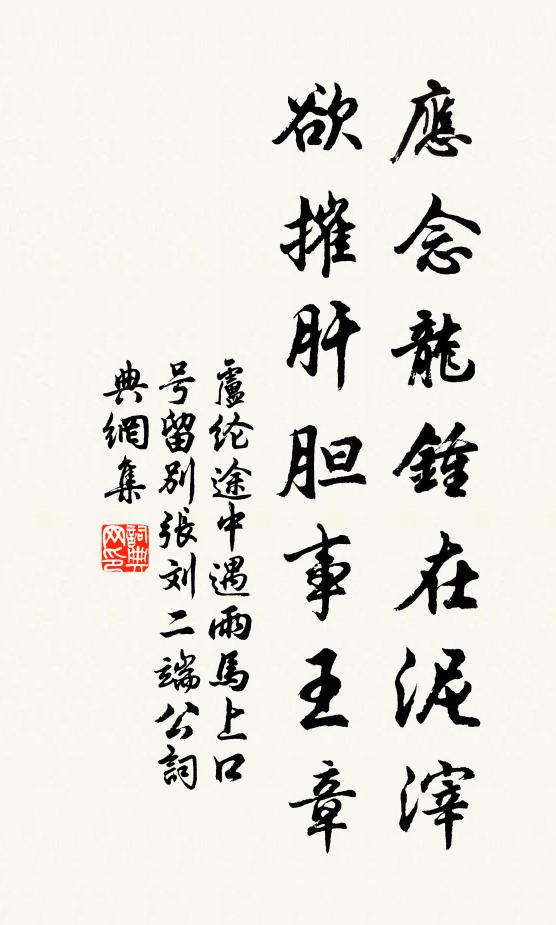 應念龍鍾在泥滓
欲摧肝胆事王章
盧纶途中遇雨馬上口
号留别張刘二端公詞
典網集
詞典
网印